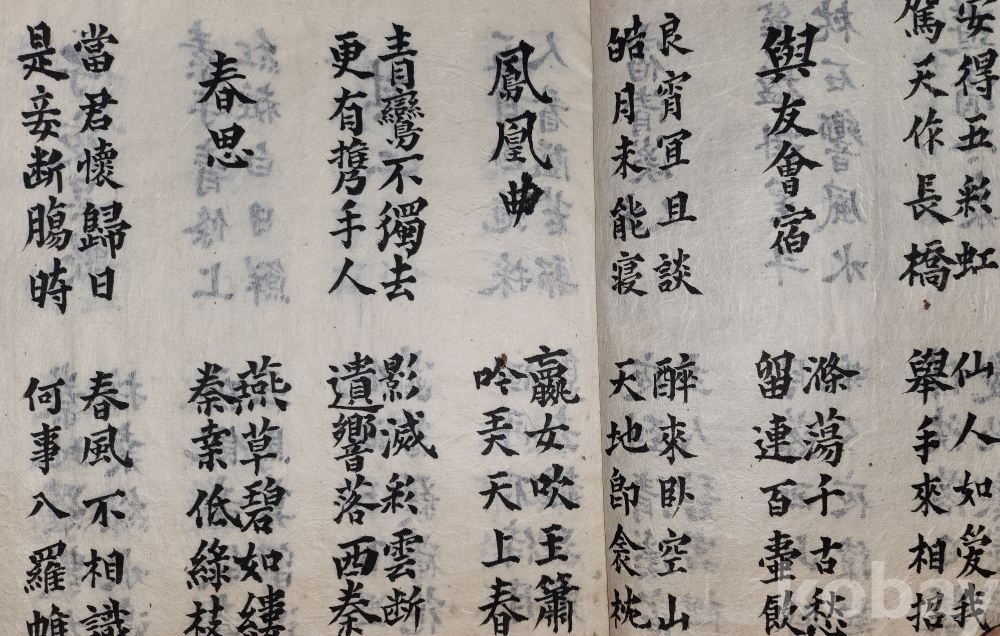 安得五彩虹
駕天作長橋
仙人如愛我
舉手來相招
與友會宿
滌蕩千古愁
留連百壷飮
良宵冝且談
皓月未能寢
醉來臥空山
天地卽衾枕
鳳凰曲
嬴女吹玉簫
吟弄天上春
青鸞不獨去
更有携手人
影滅彩雲断
遺響落西秦
春思
燕草碧如縷
秦桒低綠枝
當君懷歸日
是妾断膓時
春風不相識
何事入羅帷
kobay